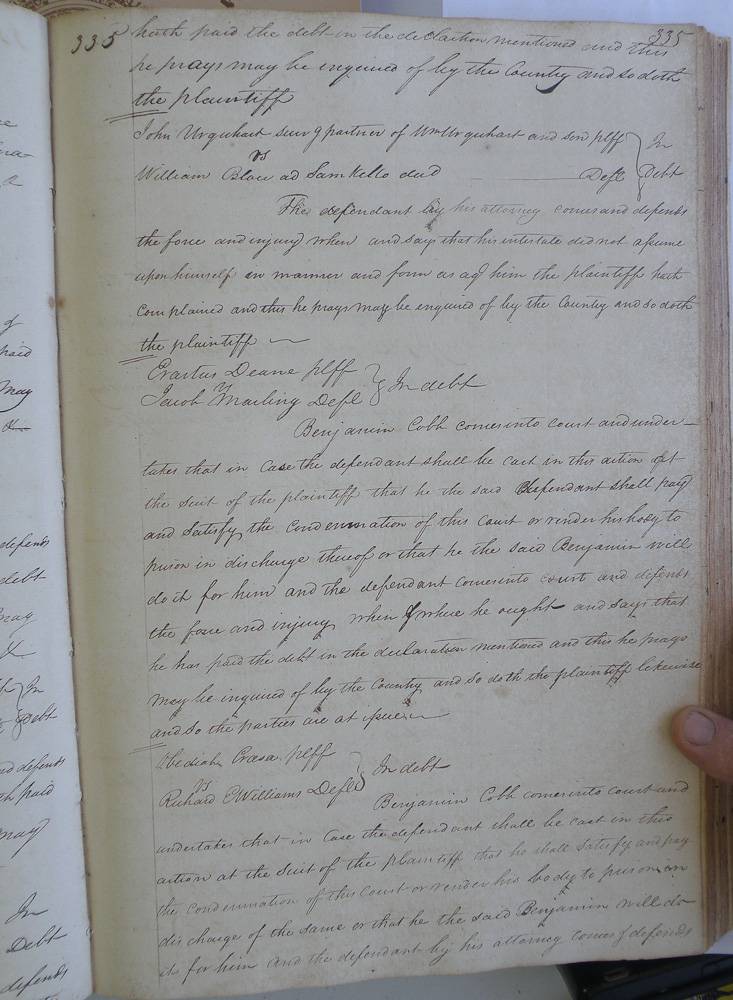 335
335
hath paid the debt in the declaration mentioned and this
he prays may be inquired of by the Country and so doth
the plaintiff
John Urquhart surv g partner of Wm Urquhart and son plff
vs
In
William Blow ad Sam Kello decd Deft
Debt
The defendant by his attorney comes and defends
the force and injury when and says that his intestate did not assume
upon himself in manner and form as agt him the plaintiff hath
complained and this he prays may be enquired of by the Country and so doth
the plaintiff
Erastus Deane plff
vs
In debt
Jacob Deft
Benjamin Cobb comes into court and under-
takes that in Case the defendant shall be cast in this action at
the suit of the plaintiff that he the said defendant shall pay
and Satisfy the Condemnation of this Court or render his body to
prison in discharge thereof or that he the said Benjamin will
do it for him and the defendant comes into court and defends
the force and injury when & where he ought and says that
he has paid the debt in the declaration mentioned and this he prays
may be inquired of by the Country and so doth the plaintiff likewise
and so the parties are at issue
plff
vs
In debt
Richard E Williams Deft
Benjamin Cobb comes into court and
undertakes that in Case the defendant shall be cast in this
action at the suit of the plaintiff that he shall satisfy and pay
the condemnation of this Court or render his body to prison in
discharge of the same or that he the said Benjamin will do
it for him and the defendant by his attorney comes & defends
may
&
In
Debt
defends
hath paid
may
In
Debt
defends